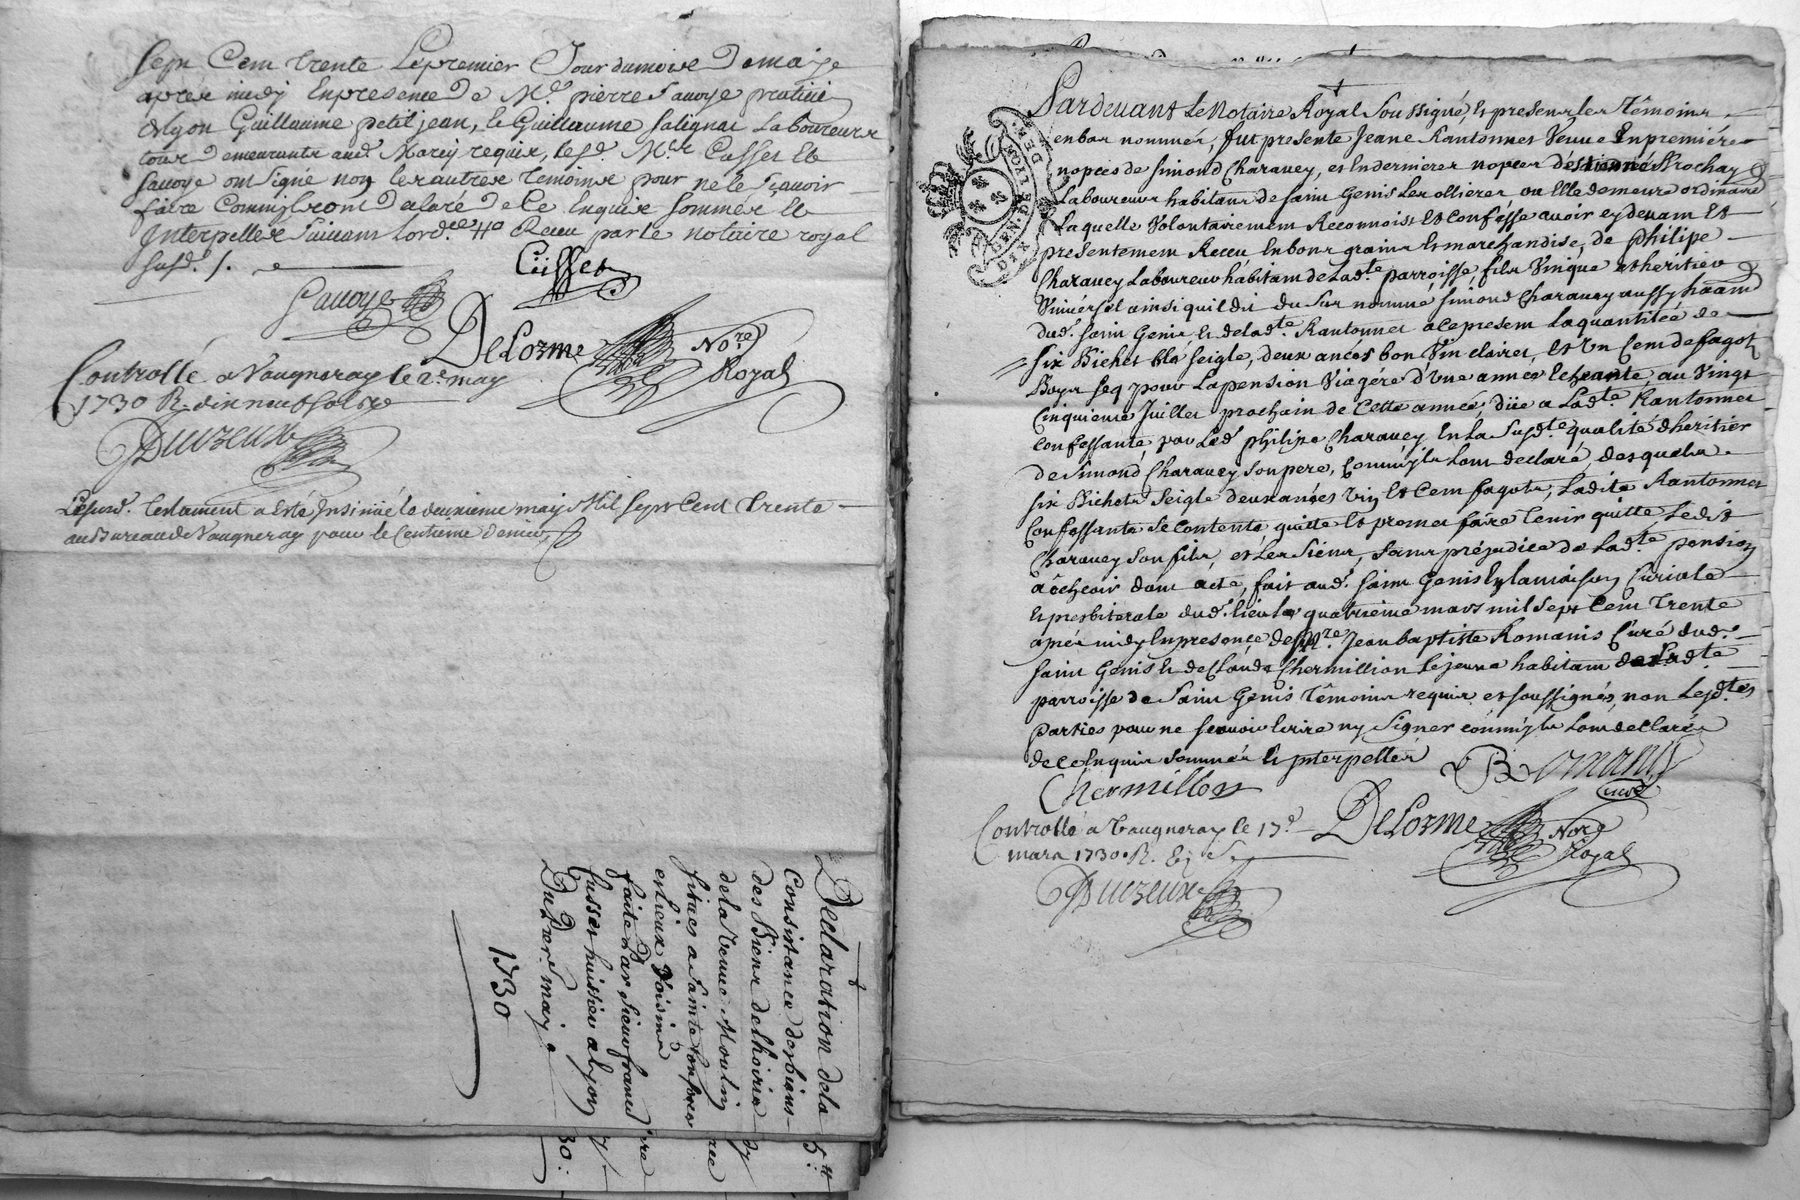 Sept Cent trente Le premier Jour du mois De may
apres midy En presence De Mre pierre Sauoye praticien
a lyon Guillaume petitjean, et Guillaume Salignac Laboureurs
tous Demeurants aud. Marcy requis, led. Sr Cusset Et
Sauoye ont signé non les autres temoins pour ne le sçauoir
faire Comm'ils ont declaré De Ce Enquis sommes Et
Interpelles suiuant Lord.ce Receu par le notaire royal
susd. /.
Cusset
Sauoye
DeLorme Nore. Royal
Controllé a Vaugneray le 2e may
1730 R. dix neuf sols
Duzeux
Le susd. testament a Esté Insinué le deuxieme may Mil sept Cent trente
au Bureau de Vaugneray pour le Centieme denier
Declaration de la
Consistance des biens
des Biens de lhoirie
de la veuue Moulin
situes a Sainte Consorce
et Lieux Voisins
faite Par Sieur francois
Cusset huissier a lyon
Du Per. may
1730
GEN. DE LYON
Pardeuant Le Notaire Royal Soussigné, Et presents les Témoins
en bas nommés, fut presente Jeane Rantonnet Veuue En premiere
nopces de Simond Charauey, et En dernieres nopces d'estienne Brochay
Laboureur habitant de saint Genis Les ollieres ou Elle demeure ordinairt
Laquelle Volontairement Reconnoist Et Confesse auoir cy deuant Et
presentement Receu En bons grains Et marchandise, de Philipe
Charauey Laboureur habitant de Lad.te parroisse, fils Vnique et heritier
Vniuersel ainsi quil dit du sus nommé simond Charauey aussy habitant
dud. saint Genis Et de lad.te Rantonnet a Ce present La quantitée de
six Bichet blé seigle, deux anées bon Vin clairet, Et Vn Cent de fagots
Boys seq pour La pension Viagére d'Vne année Echeante, au Vingt
Cinquieme Juillet prochain de Cette année, düe a Lad.te Rantonnet
Confessante, par Led. philipe Charauey En La Susd.te qualité dheritier
de Simond Charauey son pere, Comm'ils L'ont declaré, desquels
six Bichets Seigle deux anées Vin Et Cent fagots, Ladite Rantonnet
Confessante Se Contente quitte Et promet faire tenir quitte Ledit
Charauey son fils, et Les Siens, sans préjudice de Lad.te pension
a écheoir dont acte, fait aud. saint Genis En la maison Curiale
Et presbiterale dud. lieu le quatrieme mars mil sept Cent Trente
aprés midy En presence de Mre. Jean baptiste Romanis Curé dud.
saint Genis Et de Claude Chermillion Le jeune habitant de Lad.te
parroisse de Saint Genis Témoins requis et soussignés, non Lesd.tes
Parties pour ne scauoir Ecrire ny Signer comm'ils L'ont declaré
de ce Enquis sommés Et Interpellés
Romanis
curé
Chermillon
DeLorme Nore Royal
Controllé a Vaugneray le 17e
mars 1730. R.
Duzeux